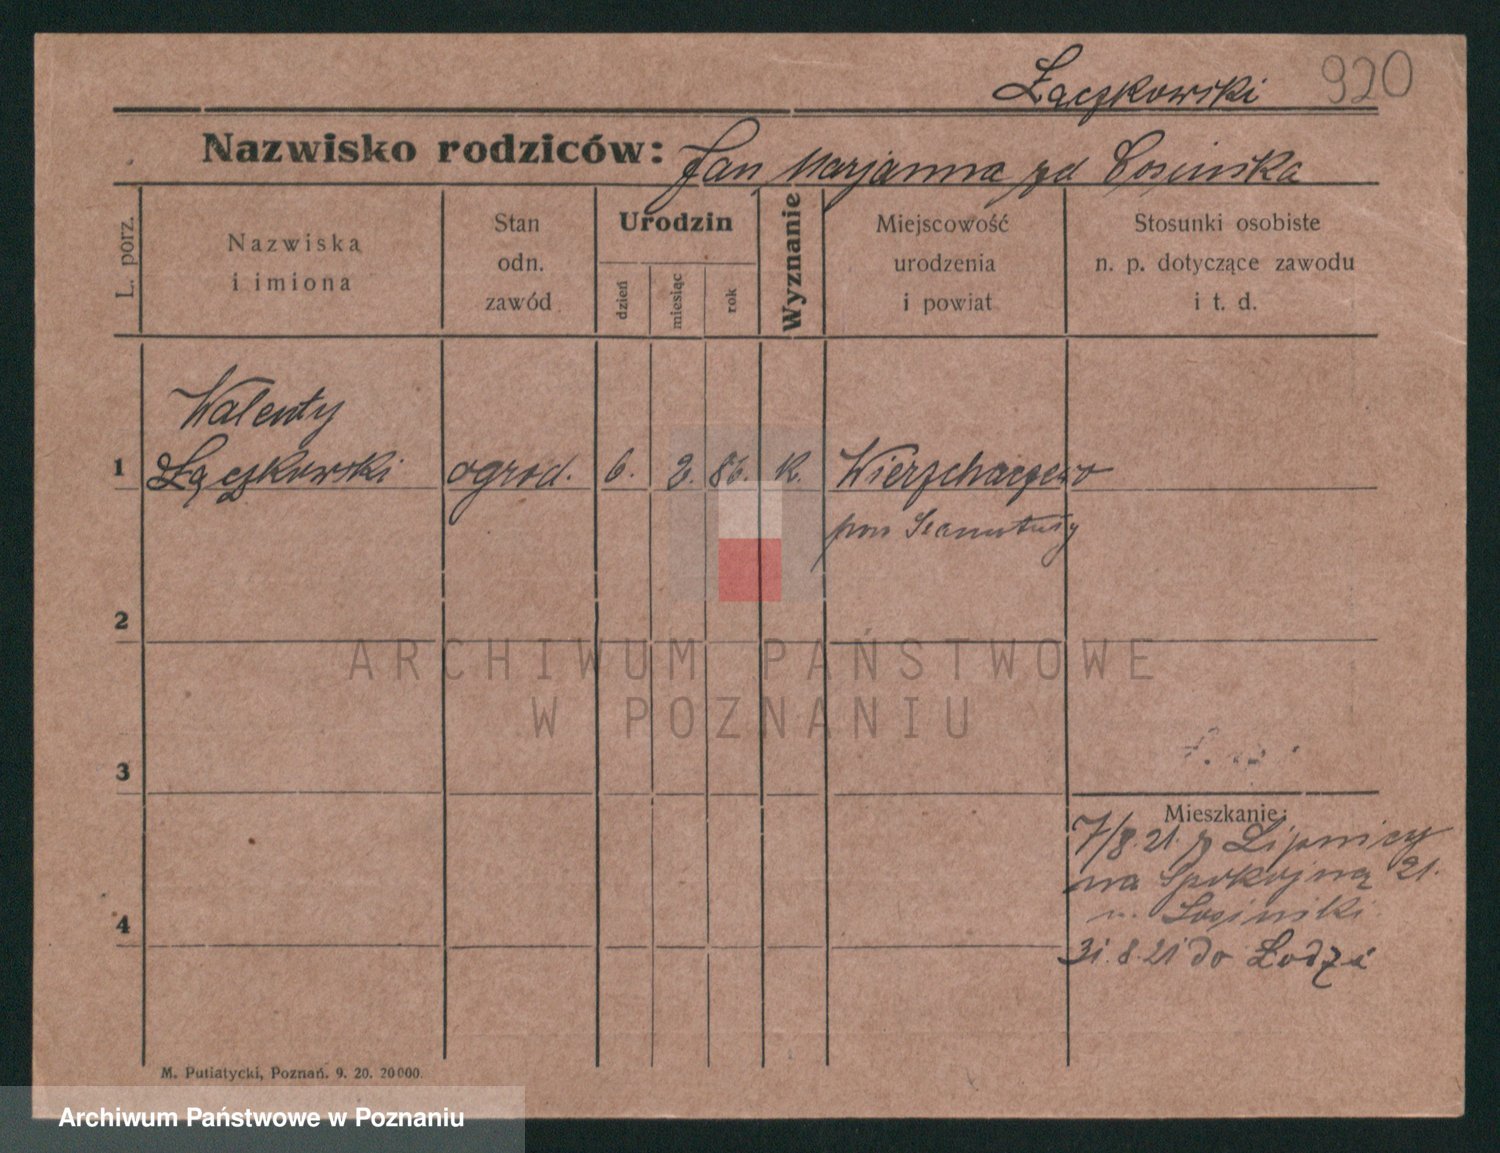 Łączkowski 920
Nazwisko rodziców: Jan Marjanna zd Łosińska
L. porz.
Nazwiska
i imiona
Stan
odn.
zawód
Urodzin
dzień
miesiąc
rok
Wyznanie
Miejscowość
urodzenia
i powiat
Stosunki osobiste
n. p. dotyczące zawodu
i t. d.
Walenty
1 Łączkowski ogrod. 6. 2. 86. k. Wierzchaczewo
pow Szamotuły
2
3
4
Mieszkanie:
7/8.21. z Lipnicy
na Spokojną 21.
u. Łosiński
31.8.21 do Łodzi
M. Putiatycki, Poznań. 9. 20. 20000.
ARCHIWUM PAŃSTWOWE
W POZNANIU
Archiwum Państwowe w Poznaniu